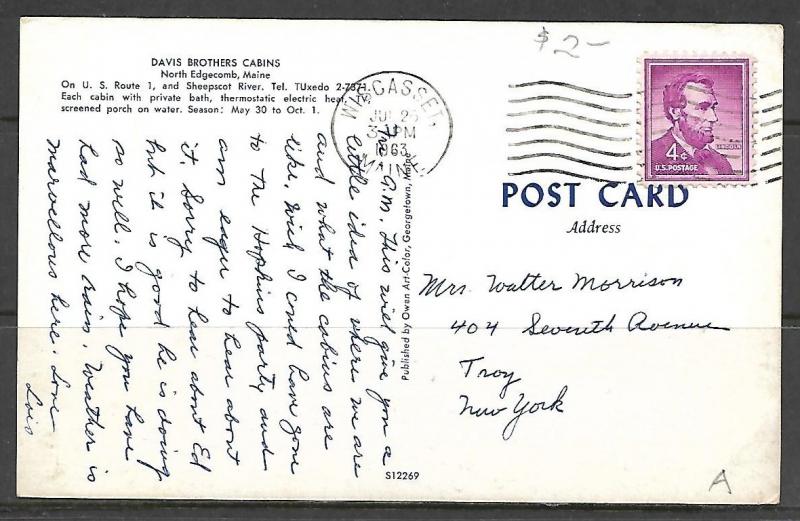 DAVIS BROTHERS CABINS
North Edgecomb, Maine
On U. S. Route 1, and Sheepscot River. Tel. TUxedo 2-7371.
Each cabin with private bath, thermostatic electric heat, TV,
screened porch on water. Season: May 30 to Oct. 1.
G.M. This will give you a
little idea of where we are
and what the cabins are
like. Wish I could have gone
to the Hopkins party and
am eager to hear about
it. Sorry to hear about Ed
but it is good he is doing
so well. I hope you have
had more rain. Weather is
marvellous here. Love
Lois
Published by Owen Art-Color, Georgetown, Maine
S12269
WISCASSET,
JUL 26
PM
1963
MAINE
$2-
4¢
LINCOLN
U.S. POSTAGE
POST CARD
Address
Mrs. Walter Morrison
404 Seventh Avenue
Troy
New York
A